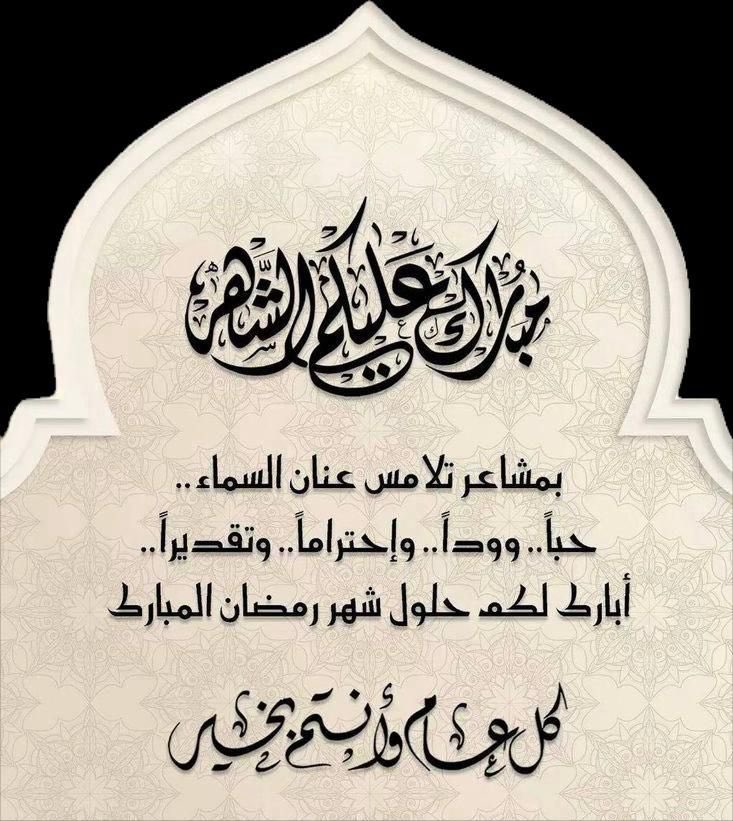 مبارك عليكم الشهر
بمشاعر تلامس عنان السماء..
حباً.. ووداً.. وإحتراماً.. وتقديراً..
أبارك لكم حلول شهر رمضان المبارك
كل عام وأنتم بخير